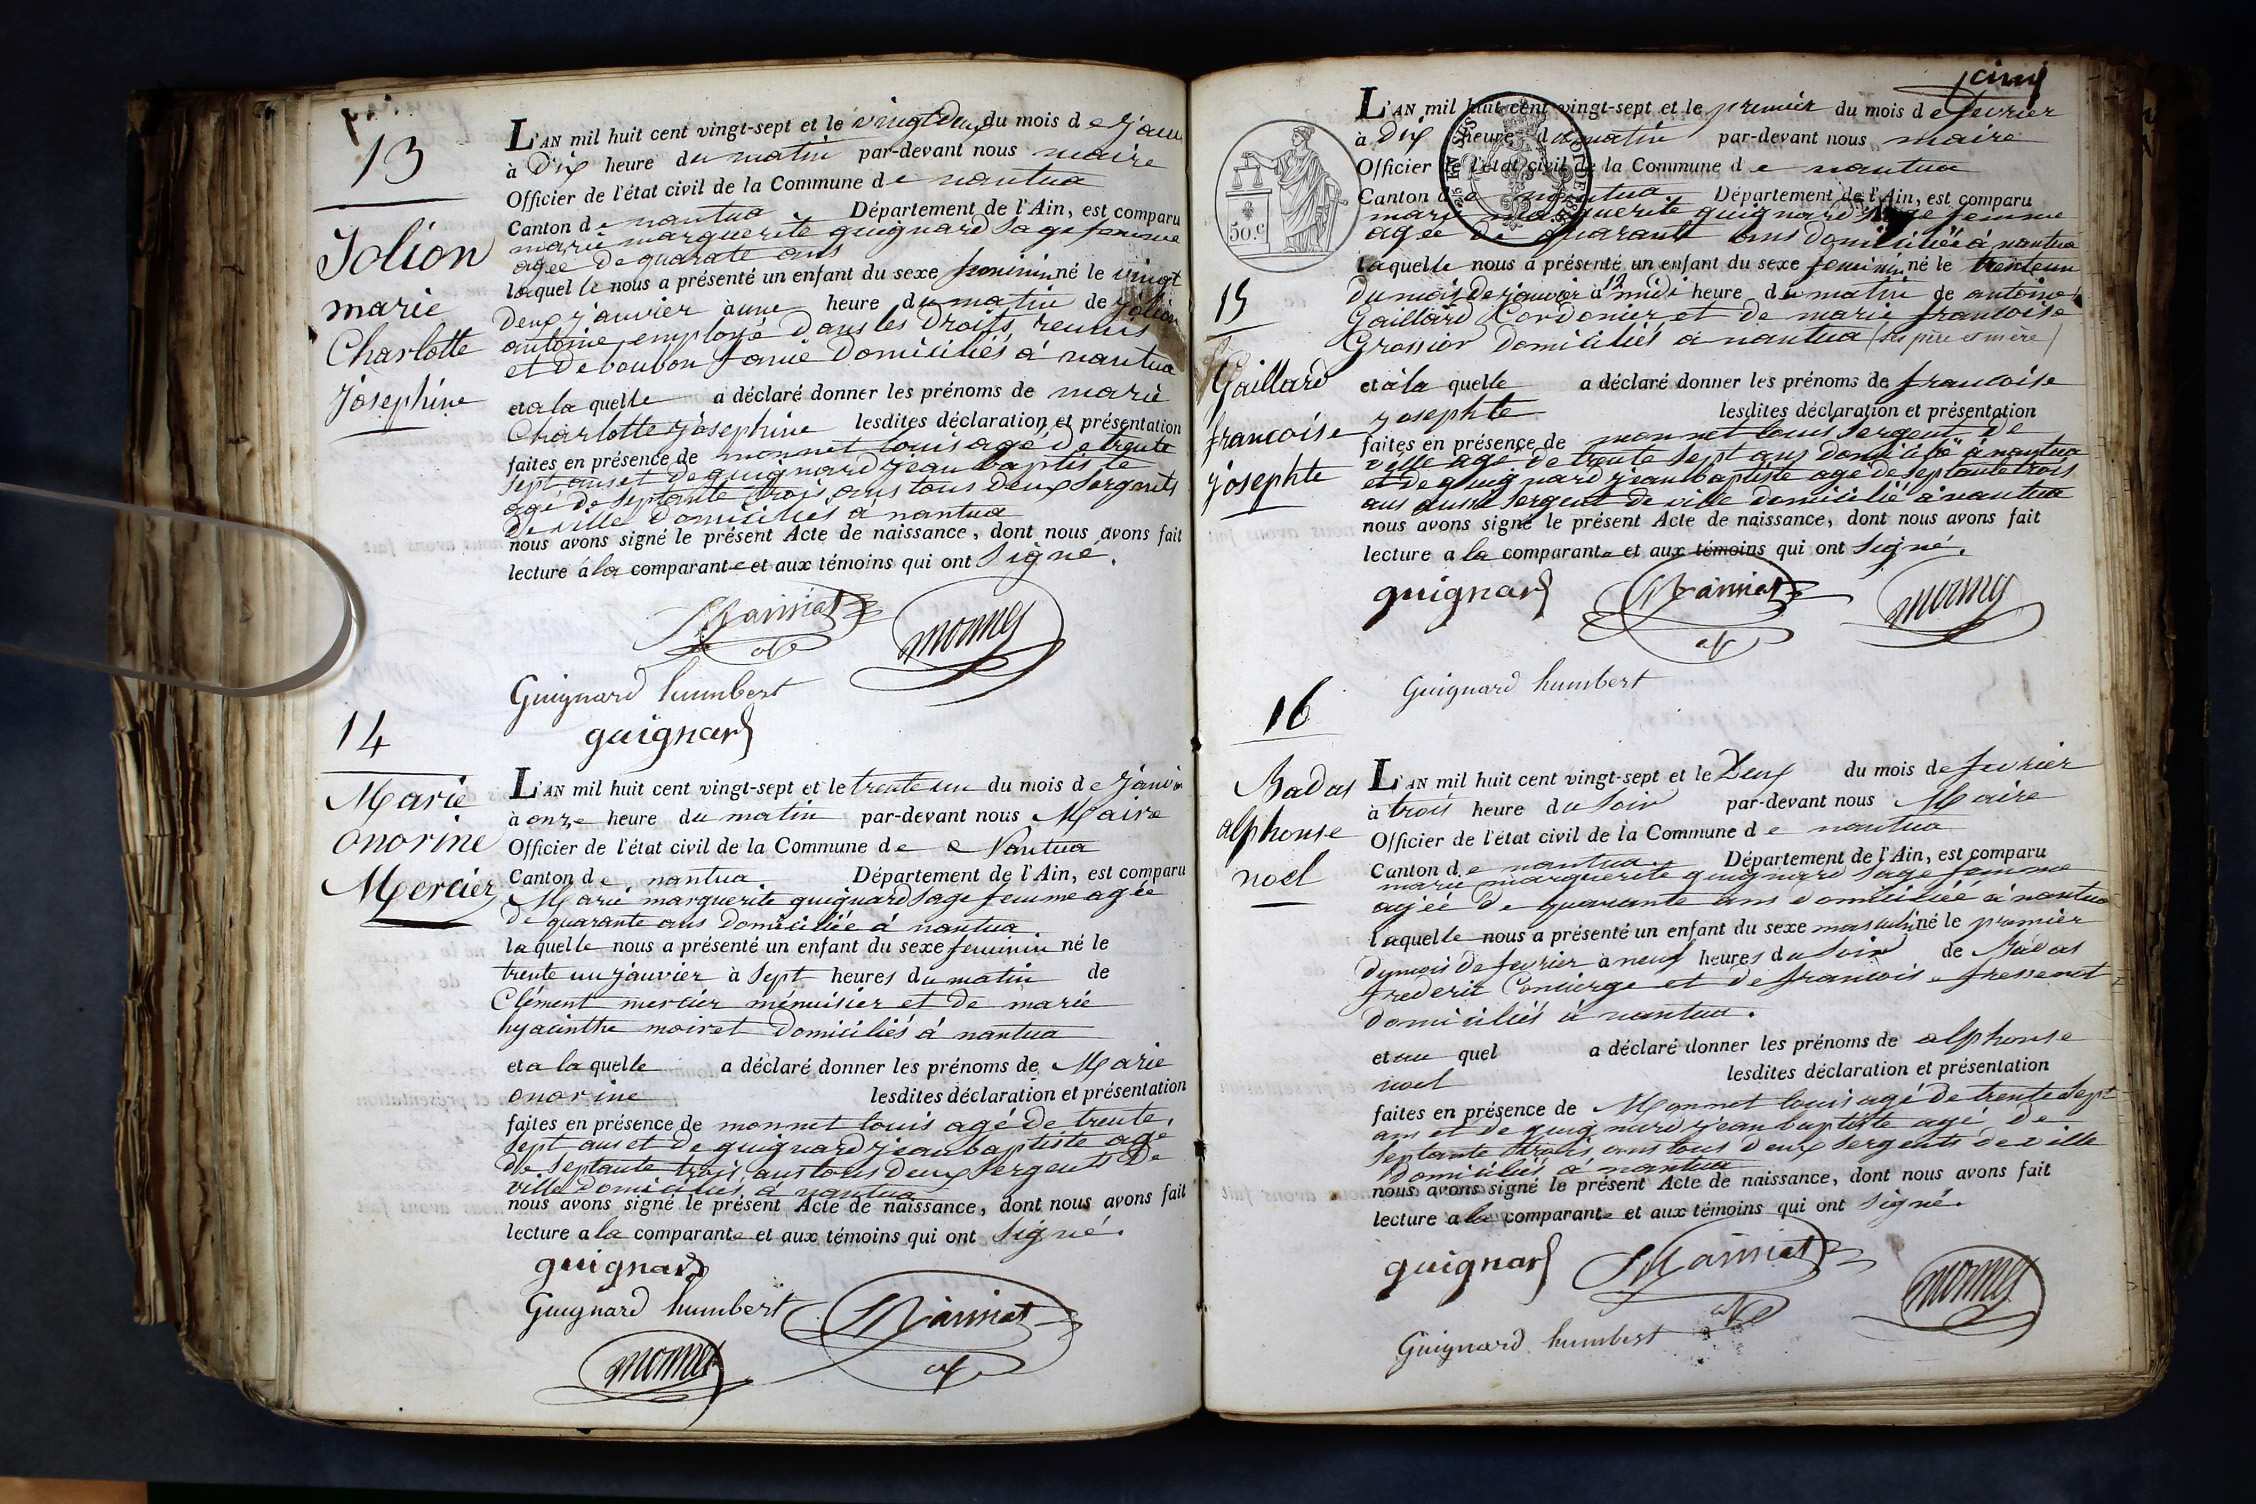 13
Jolion
marie
Charlotte
Joséphine
L'AN mil huit cent vingt-sept et le vingt deux du mois de janv
à Dix heure du matin par-devant nous maire
Officier de l'état civil de la Commune de nantua
Canton de nantua Département de l'Ain, est comparu
marie marguerite guignard sage femme
agée de quarate ans
laquelle nous a présenté un enfant du sexe feminin né le vingt
Deux janvier à une heure du matin de Jolion
antoine, employé dans les Droits reunis
et de boubon fanie Domiciliés à nantua
et a la quelle a déclaré donner les prénoms de marie
Charlotte joséphine lesdites déclaration et présentation
faites en présence de monnet louis agé de trente
sept ans et de guignard jean baptiste
agé de septante trois ans tous deux sergents
de ville domiciliés à nantua
nous avons signé le présent Acte de naissance, dont nous avons fait
lecture à la comparante et aux témoins qui ont signé.
monnet
Guignard humbert
guignard
14
Marie
onorine
Mercier
L'AN mil huit cent vingt-sept et le trente un du mois de janvier
à onze heure du matin par-devant nous Maire
Officier de l'état civil de la Commune de Nantua
Canton de nantua Département de l'Ain, est comparu
Marie marguerite guignard sage femme agée
de quarante ans domiciliée à nantua
laquelle nous a présenté un enfant du sexe feminin né le
trente un janvier à sept heures du matin de
Clément mercier ménuisier et de marie
hyacinthe moiret domiciliés à nantua
et a la quelle a déclaré donner les prénoms de Marie
onorine lesdites déclaration et présentation
faites en présence de monnet louis agé de trente
sept ans et de guignard jean baptiste agé
de septante trois ans tous deux sergents de
ville domiciliés à nantua
nous avons signé le présent Acte de naissance, dont nous avons fait
lecture a la comparante et aux témoins qui ont signé.
guignard
Guignard humbert
monnet
cinq
50.c
15
Gaillard
francoise
josephte
L'AN mil huit cent vingt-sept et le premier du mois de fevrier
à Dix heure du matin par-devant nous maire
Officier de l'état civil de la Commune de nantua
Canton de nantua Département de l'Ain, est comparu
marie marguerite guignard sage femme
agée de quarante ans domiciliée à nantua
laquelle nous a présenté un enfant du sexe feminin né le trenteun
du mois de janvier à 12 midi heure du matin de antoine
Gaillard Cordonier et de marie francoise
Grossior domiciliés à nantua (ses père et mère)
et à la quelle a déclaré donner les prénoms de francoise
josephte lesdites déclaration et présentation
faites en présence de monnet louis sergent de
ville agé de trente sept ans domicilié à nantua
et de guignard jean baptiste agé de septante trois
ans aussi sergent de ville domicilié à nantua
nous avons signé le présent Acte de naissance, dont nous avons fait
lecture a la comparante et aux témoins qui ont signé.
guignard
monnet
Guignard humbert
16
Badas
alphonse
noel
L'AN mil huit cent vingt-sept et le Deux du mois de fevrier
à trois heure du soir par-devant nous Maire
Officier de l'état civil de la Commune de nantua
Canton de nantua Département de l'Ain, est comparu
marie marguerite guignard sage femme
agée de quarante ans domiciliée à nantua
laquelle nous a présenté un enfant du sexe masculin né le premier
du mois de fevrier à neuf heures du soir de Badas
frederic Concierge et de francoise fressenet
domiciliés à nantua.
et au quel a déclaré donner les prénoms de alphonse
noel lesdites déclaration et présentation
faites en présence de Monnet louis agé de trente sept
ans et de guignard jean baptiste agé de
septante trois ans tous deux sergents de ville
domiciliés à nantua
nous avons signé le présent Acte de naissance, dont nous avons fait
lecture a la comparante et aux témoins qui ont signé.
guignard
monnet
Guignard humbert